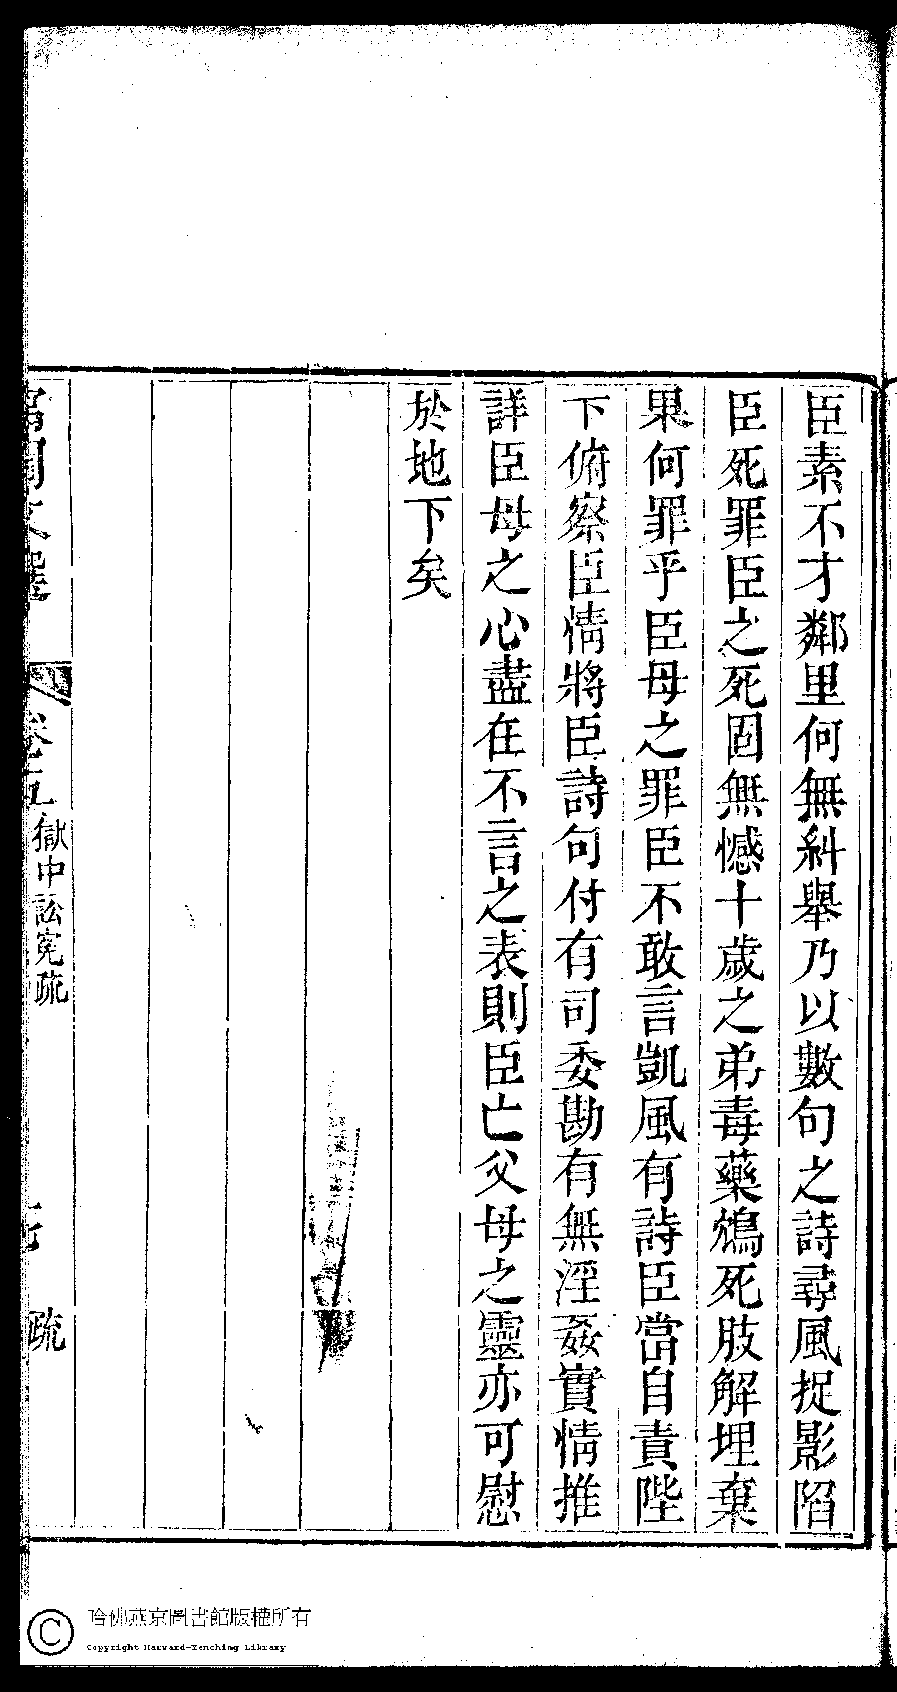 臣素不才鄰里何無糾舉乃以數句之詩尋風捉影陷
臣死罪臣之死固無憾十歲之弟毒藥鴆死肢解埋棄
果何罪乎臣母之罪臣不敢言凱風有詩臣當自責陛
下俯察臣情將臣詩句付有司委勘有無淫姦實情推
詳臣母之心盡在不言之表則臣亡父母之靈亦可慰
於地下矣
文選
獄中訟冤疏
疏
哈佛燕京圖書館版權所有
Copyright Harvard-Yenching Library